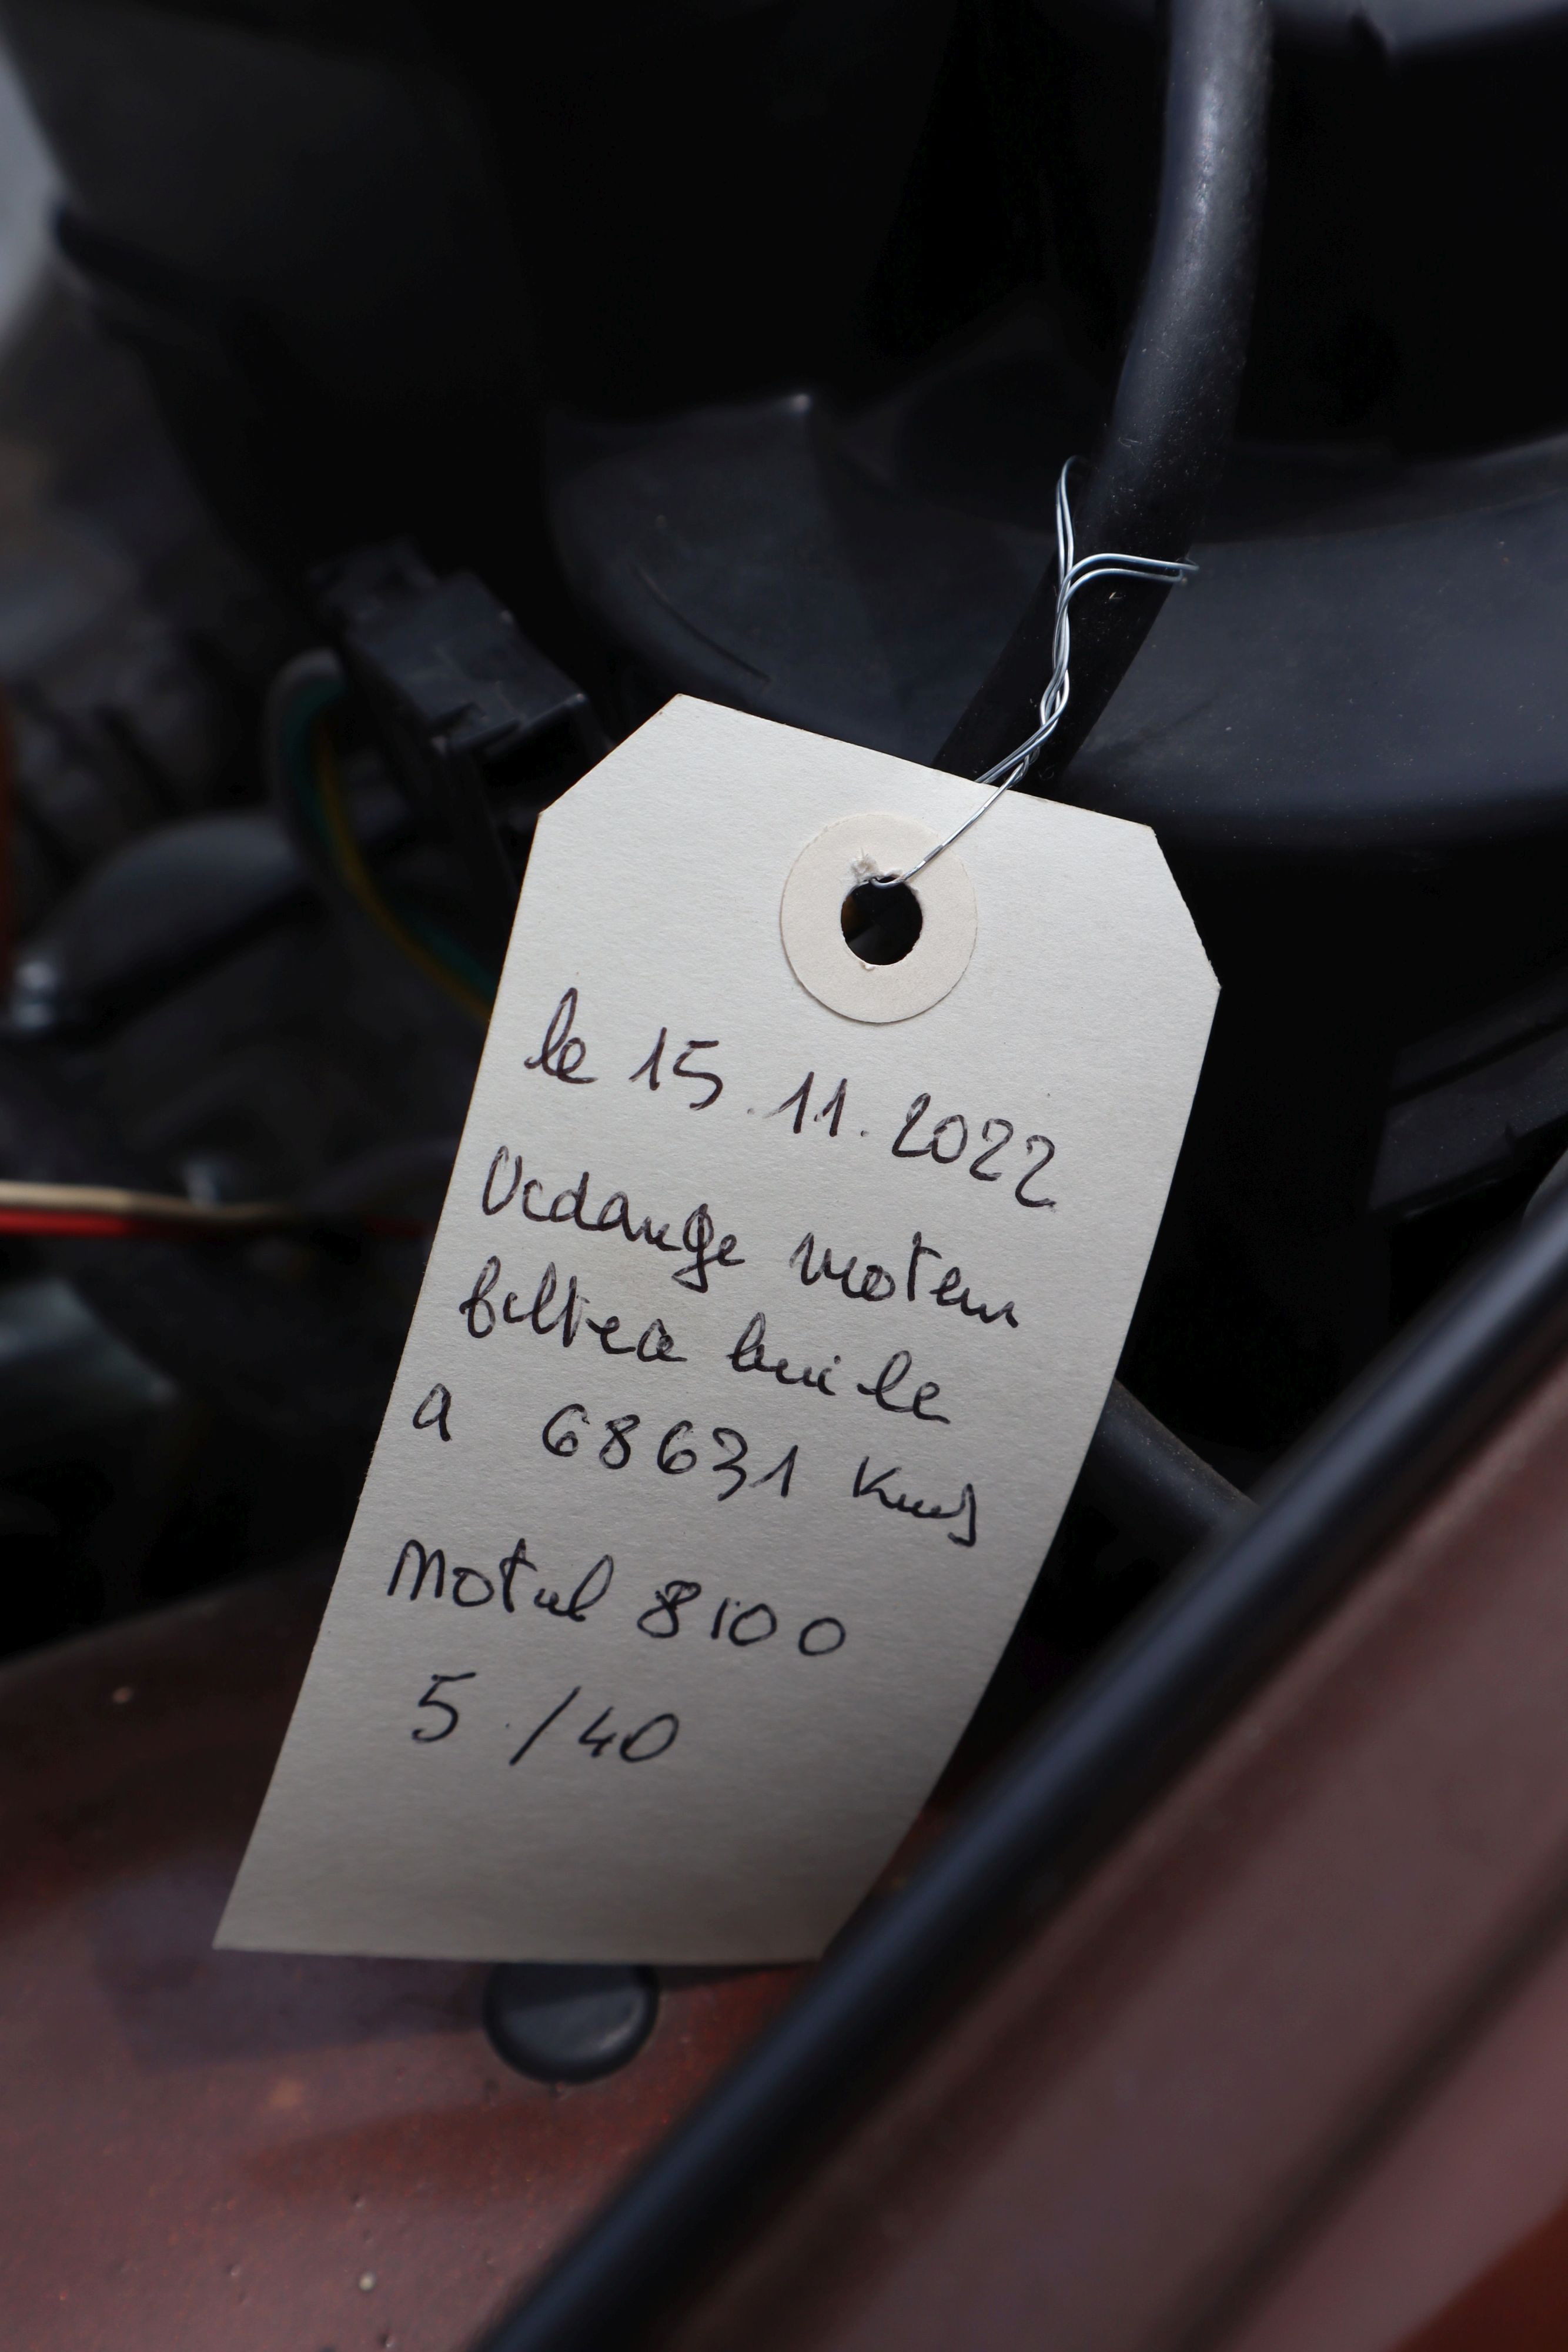 le 15.11.2022
Vidange moteur
filtre a huile
a 68631 Kms
Motul 8100
5/40